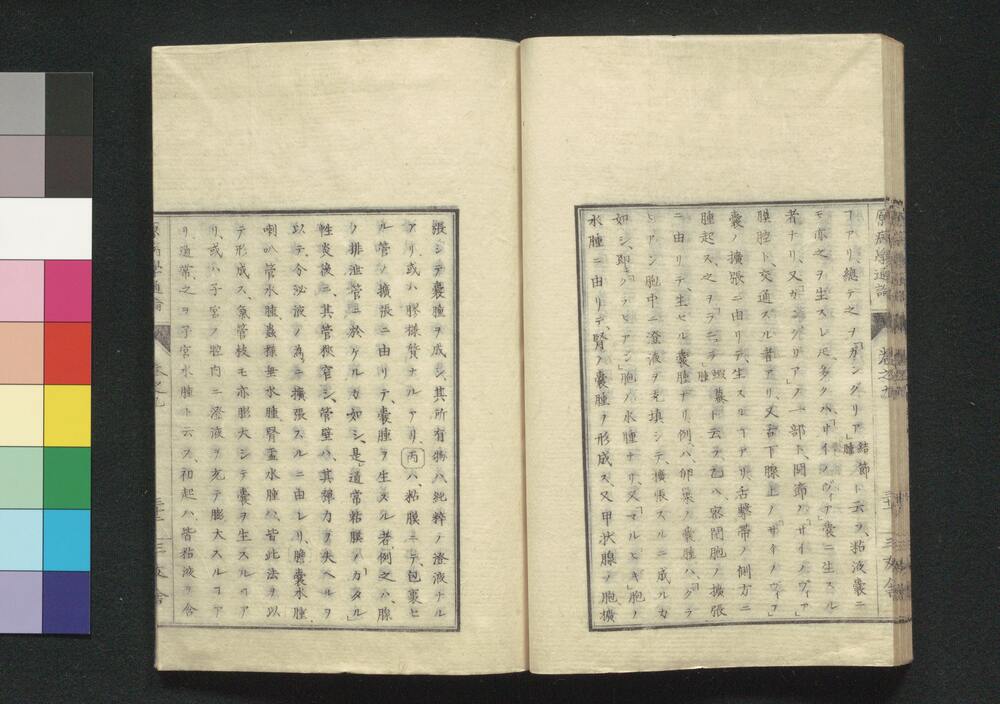 原病學通論 卷之九 三友舍
ヿアリ、總テ之ヲ「ガングリア」結節腫ト云フ、粘液囊ニ
モ亦之ヲ生スレ𪜈、多クハ「サイノヴィア」囊ニ生スル
者ナリ、又「ガングリア」ノ一部ト、関節ノ「サイノヴィア」
膜腔ト、交通スル者アリ、又舌下腺上ノ「サイノヴィア」
囊ノ擴張ニ由リテ、生スルヿアリ、舌繫帶ノ側方ニ
腫起ス、之ヲ「ラニュラ」蝦蟇腫ト云フ、乙ハ、密閉胞ノ擴張
ニ由リテ、生セル囊腫ナリ、例ハ、卵巢ノ囊腫ハ、「グラ
ーヒアン」胞中ニ澄液ヲ充填シテ、擴張スルニ成ルカ
如シ、即「グラヒアン」胞ノ水腫ナリ、又「マルピギ」胞ノ
水腫ニ由リテ、腎ノ囊腫ヲ形成ス、又甲状腺ノ胞擴
張シテ囊腫ヲ成シ、其所有物ハ純粹ノ澄液ナル
アリ、或ハ膠樣質ナルアリ、丙ハ、粘膜ニテ、包裹セ
ル管ノ擴張ニ由リテ、囊腫ヲ生スル者、例之ハ、腺
ノ排泄管ニ於ケルカ如シ、是通常粘膜ノ「カタル」
性炎後ニ、其管狹窄シ、管壁ハ、其彈力ヲ失ヘルヲ
以テ、今泌液ノ為ニ擴張スルニ由レリ、膽囊水腫
喇叭管水腫、蟲樣垂水腫、腎盂水腫ハ、皆此法ヲ以
テ形成ス、氣管枝モ亦膨大シテ囊ヲ生スルヿア
リ、或ハ子宮ノ腔内ニ澄液ヲ充テ膨大スルヿア
リ、通常之ヲ子宮水腫ト云フ、初起ハ、皆粘液ヲ含
原病學通論 卷之九 三友舍